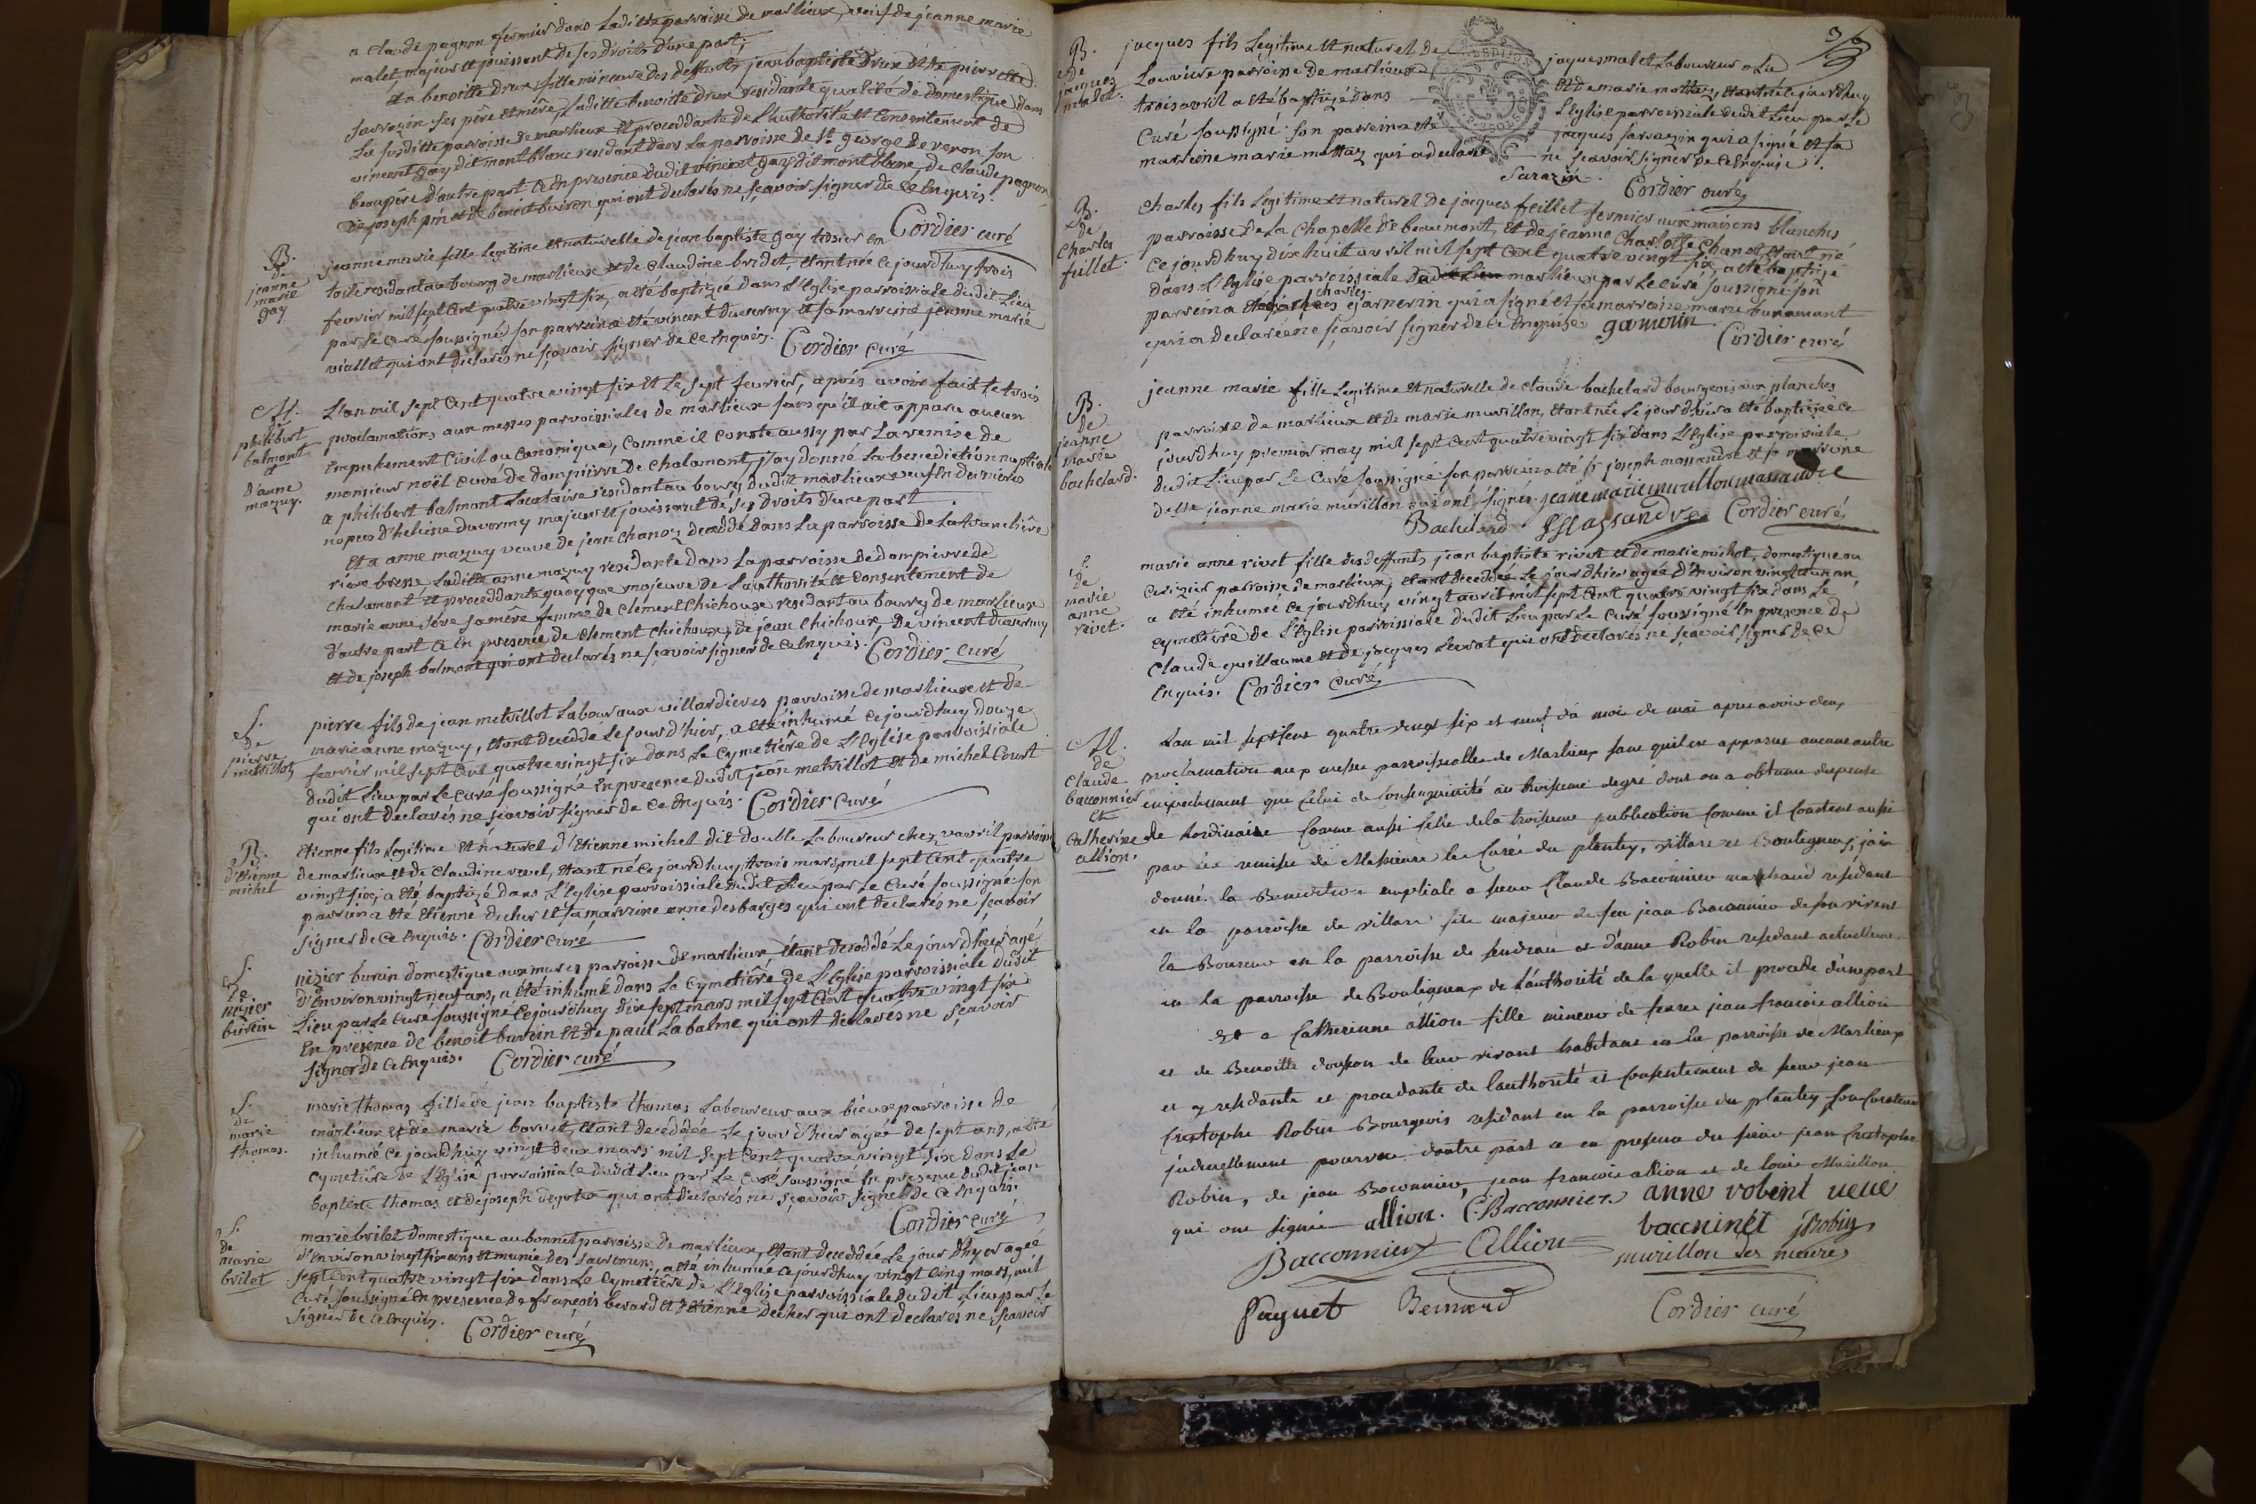 a claude pagnon fermier dans laditte parroisse de marlieux, veuf de jeanne marie
malet, majeur et jouissant de ses droits d'une part;
et a benoitte droux fille mineure des deffunts jean baptiste droux et de pierrette
sarrazin ses père et mère, laditte benoite droux residante qualité de domestique dans
la susditte parroisse de marlieux et proceddante de l'authorité et consentement de
vincent gay dit montblanc residant dans la parroisse de st george de renon son
beaupère d'autre part et en presence dudit vincent gay dit montblanc, de claude pagnon
de joseph et de benoit buiron qui ont declarés ne sçavoir signer de ce enquis.
Cordier curé
B.
de
jeanne
marie
gay
jeanne marie fille legitime et naturelle de jean baptiste gay tissier en
toile residant au bourg de marlieux et de claudine bridet, etant née ce jourd'huy trois
fevrier mil sept cent quatre vingt six, a été baptizée dans l'Eglise parroissiale dudit lieu
par le curé soussigné son parrein a été vincent duvernay et sa marreine jeanne marie
viallet qui ont declarés ne sçavoir signer de ce enquis. Cordier curé
M.
de
philibert
balmont
et
d'anne
mazuy.
L'an mil sept cent quatre vingt six et le sept fevrier, après avoir fait le trois
proclamations aux messes parroissiales de marlieux sans qu'il ait apparu aucun
empechement civil ou canonique, comme il conste aussy par la remise de
monsieur noël curé de dompierre de chalamont, j'ay donné la benediction nuptiale
a philibert balmont locataire residant au bourg dudit marlieux veuf en dernieres
nopces d'helcine duvernay majeur et jouissant de ses droits d'une part
et a anne mazuy veuve de jean chanoz deceddé dans la parroisse de la tranchère
riere bresse laditte anne mazuy residante dans la parroisse de dompierre de
chalamont et proceddante quoyque majeure de l'authorité et consentement de
marie anne seve sa mère femme de clément chichoux residant au bourg de marlieux
d'autre part et en presence de clément chichoux, de jean chichoux, de vincent duvernay
et de joseph balmont qui ont declarés ne sçavoir signer de ce enquis. Cordier curé
S.
de
pierre
metrillot
pierre fils de jean metrillot labour aux villardieres parroisse de marlieux et de
marie anne mazuy, etant deceddé le jour d'hier, a été inhumé ce jourd'huy douze
fevrier mil sept cent quatre vingt six dans le cymetière de l'Eglise parroissiale
dudit lieu par le curé soussigné en presence dudit jean metrillot et de michel court
qui ont declarés ne sçavoir signer de ce enquis. Cordier curé
B.
d'etienne
michel
etienne fils legitime et naturel d'etienne michel dit double laboureur chez vavril parroisse
de marlieux et de claudine revel, etant né ce jourd'huy trois mars mil sept cent quatre
vingt six, a été baptizé dans l'Eglise parroissiale dudit lieu par le curé soussigné son
parrein a été etienne decher et sa marreine anne desbarges qui ont declarés ne sçavoir
signer de ce enquis. Cordier curé
S.
de
nizier
burtin
nizier burtin domestique aux mures parroisse de marlieux, etant deceddé le jour d'hier agé
d'environ vingt neuf ans, a été inhumé dans la cymetière de l'Eglise parroissiale dudit
lieu par le curé soussigné ce jourd'huy dix sept mars mil sept cent quatre vingt six
en presence de benoit burtin et de paul labalme qui ont declarés ne sçavoir
signer de ce enquis. Cordier curé
S.
de
marie
thomas.
marie thomas fille de jean baptiste thomas laboureur aux bieux parroisse de
marlieux et de marie borvet, etant deceddée le jour d'hier agée de sept ans, a été
inhumée ce jourd'huy vingt deux mars mil sept cent quatre vingt six dans le
cymetière de l'Eglise parroissiale dudit lieu par le curé soussigné en presence dudit jean
baptiste thomas et de joseph qui ont declarés ne sçavoir signer de ce enquis.
Cordier curé
S.
de
marie
brilet
marie brilet domestique au bonnet parroisse de marlieux, etant deceddée le jour d'hyer agée
d'environ vingt six ans et munie des sacremens, a été inhumée ce jourd'huy vingt cinq mars, mil
sept cent quatre vingt six dans le cymetière de l'Eglise parroissiale dudit lieu par le
curé soussigné en presence de françois berard et d'etienne decher qui ont declarés ne sçavoir
signer de ce enquis. Cordier curé
3
B.
de
jacques
malet.
jacques fils legitime et naturel de jacques malet laboureur a la
Louviere parroisse de marlieux et de marie mottaz, etant né ce jourd'huy
trois avril a été baptizé dans l'Eglise parroissiale dudit lieu par le
curé soussigné son parrein a été jacques sarrazin qui a signé et sa
marreine marie mottaz qui a declaré ne sçavoir signer de ce enquise.
Sarazin. Cordier curé
B.
de
charles
fillet.
charles fils legitime et naturel de jacques feillet fermier aux maisons blanches
parroisse de la chapelle de beaumont, et de jeanne charlotte chanet etant né
ce jourd'huy dix huit avril mil sept cent quatre vingt six, a été baptizé
dans l'Eglise parroissiale marlieux par le curé soussigné son
parrein a été charles garnerin qui a signé et sa marreine marie
qui a declarée ne sçavoir signer de ce enquise garnerin
Cordier curé
B.
de
jeanne
marie
bachelard.
jeanne marie fille legitime et naturelle de claude bachelard bourgeois aux planches
parroisse de marlieux et de marie murillon, etant née le jour d'hier a été baptizée ce
jourd'huy premier may mil sept cent quatre vingt six dans l'Eglise parroissiale
dudit lieu par le curé soussigné son parrein a été sr joseph massandre et sa marreine
delle jeanne marie murillon qui ont signés. jeane marie murillon massandre
Bachelard J Massandre Cordier curé
S.
de
marie
anne
rivet.
marie anne rivet fille des deffunts jean baptiste rivet et de marie michot, domestique au
cerizier parroisse de marlieux, etant deceddée le jour d'hier agée d'environ vingt et un an,
a été inhumée ce jourd'huy vingt avril mil sept cent quatre vingt six dans le
cymetière de l'Eglise parroissiale dudit lieu par le curé soussigné en presence de
claude guillaume et de jacques qui ont declarés ne sçavoir signer de ce
enquis. Cordier curé
M.
de
claude
baconnier
et
catherine
allion.
L'an mil sept cent quatre vingt six et neuf du mois de mai apres avoir deux
proclamation aux messes parroissialles de Marlieux sans quil en apparus aucun autre
empechement que celui de consanguinité au troisieme degré dont on a obtenu dispense
de lordinaire comme aussi celle de la troisieme publication comme il constent aussi
par les remises de Messieurs les Curés du plantey, villars et Bouligneux, jai
donné la Benediction nuptiale a sieur Claude Baconnier marchand residant
en la parroisse de villars fils majeur de feu jean Baconnier de son vivant
la Boureur en la parroisse de sandran et d'anne Robin residant actuellement
en la parroisse de Bouligneux de l'authorité de la quelle il procede d'une part
et a Catherinne allion fille mineur de feu jean francois allion
et de Benoitte doupon de leur vivant habitant en la parroisse de Marlieux
et y residante et procedante de lauthorité et consentement de sieur jean
Crestophe Robin Bourgeois residant en la parroisse du plantey son curateur
judiciellement pourvu dautre part et en presence du sieur jean Crestophe
Robin, de jean Baconnier, jean francois allion et de louis Murillon
qui ont signés allion. C Bacconnier. anne robint veue
Bacconnier Allion bacconinet J Robin
murillon
Paquet Bernard Cordier curé